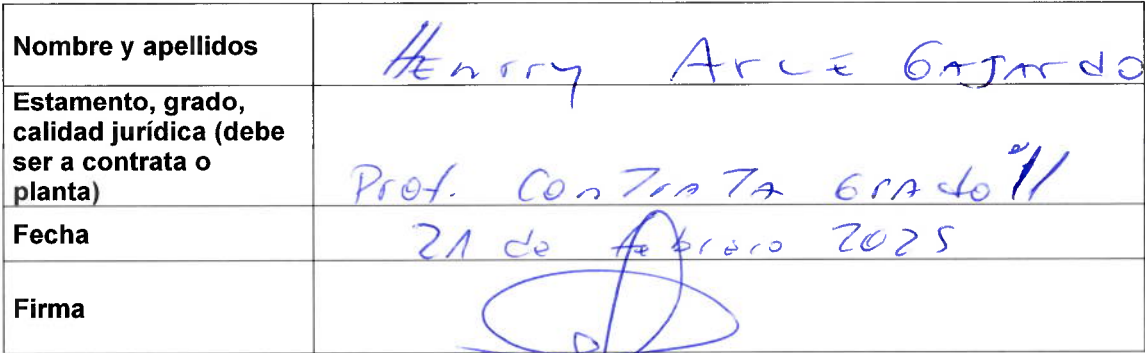 Nombre y apellidos
Henrry Arce Gajardo
Estamento, grado,
calidad jurídica (debe
ser a contrata o
planta)
Prof. Contrata Grado 11
Fecha
21 de febrero 2025
Firma